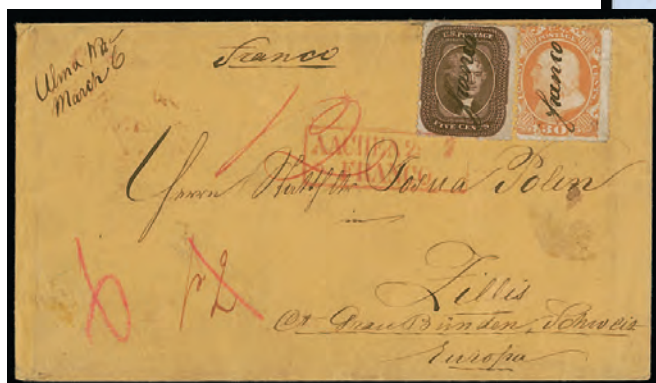 Alma Wis
March 6
Franco
U.S. POSTAGE
FIVE CENTS
U.S. POSTAGE
30
franco
franco
12
AACHEN 2
FRANCO
Herrn Josua Polin
in
Zillis
Ct. Graubünden, Schweiz
Europa
6
f2